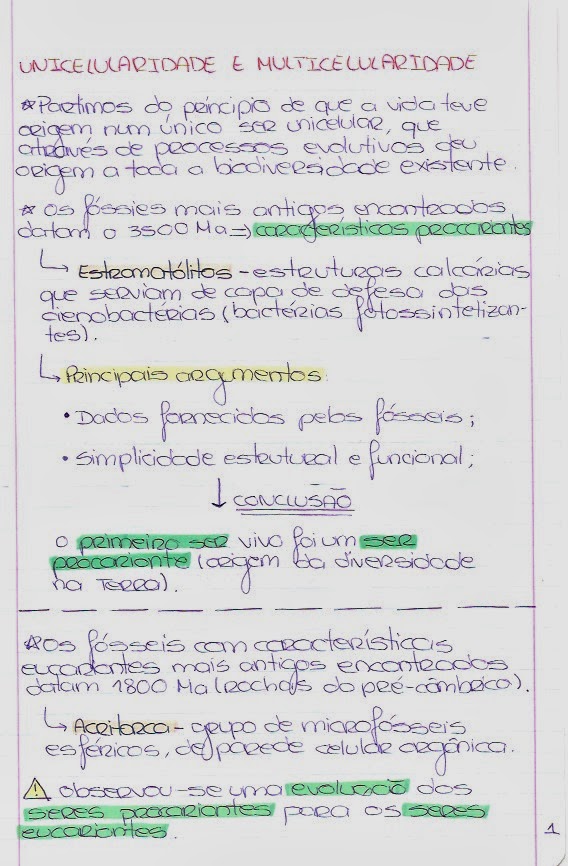 UNICELULARIDADE E MULTICELULARIDADE
☆Partimos do princípio de que a vida teve
origem num único ser unicelular, que
através de processos evolutivos deu
origem a toda a biodiversidade existente.
☆ Os fóssies mais antigos encontrados
datam o 3500 Ma => características procariontes
↳ Estromatólitos - estruturas calcárias
que serviam de capa de defesa das
cienobactérias (bactérias fotossintetizan-
tes).
↳ Principais argumentos:
• Dados fornecidos pelos fósseis;
• simplicidade estrutural e funcional;
↓ CONCLUSÃO
O primeiro ser vivo foi um ser
procarionte (origem da diversidade
na Terra).
☆Os fósseis com características
eucariontes mais antigos encontrados
datam 1800 Ma (rochas do pré-câmbrico).
↳ Acritarca - grupo de microfósseis
esféricos, de parede celular orgânica.
⚠ Observou-se uma evolução dos
seres procariontes para os seres
eucariontes.
1